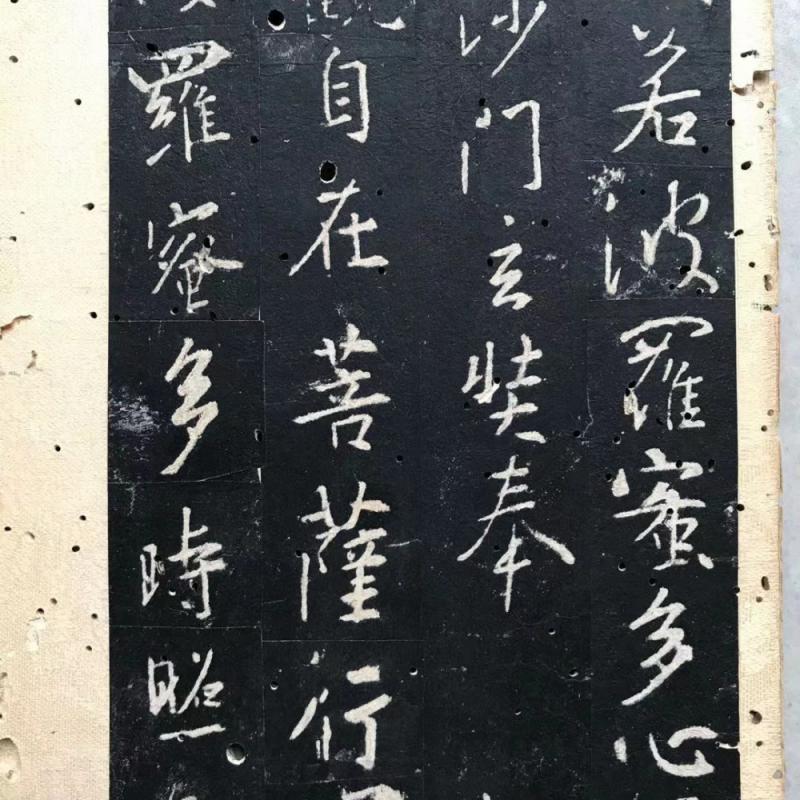 若波羅蜜多心
沙門玄奘奉
觀自在菩薩行
波羅蜜多時照